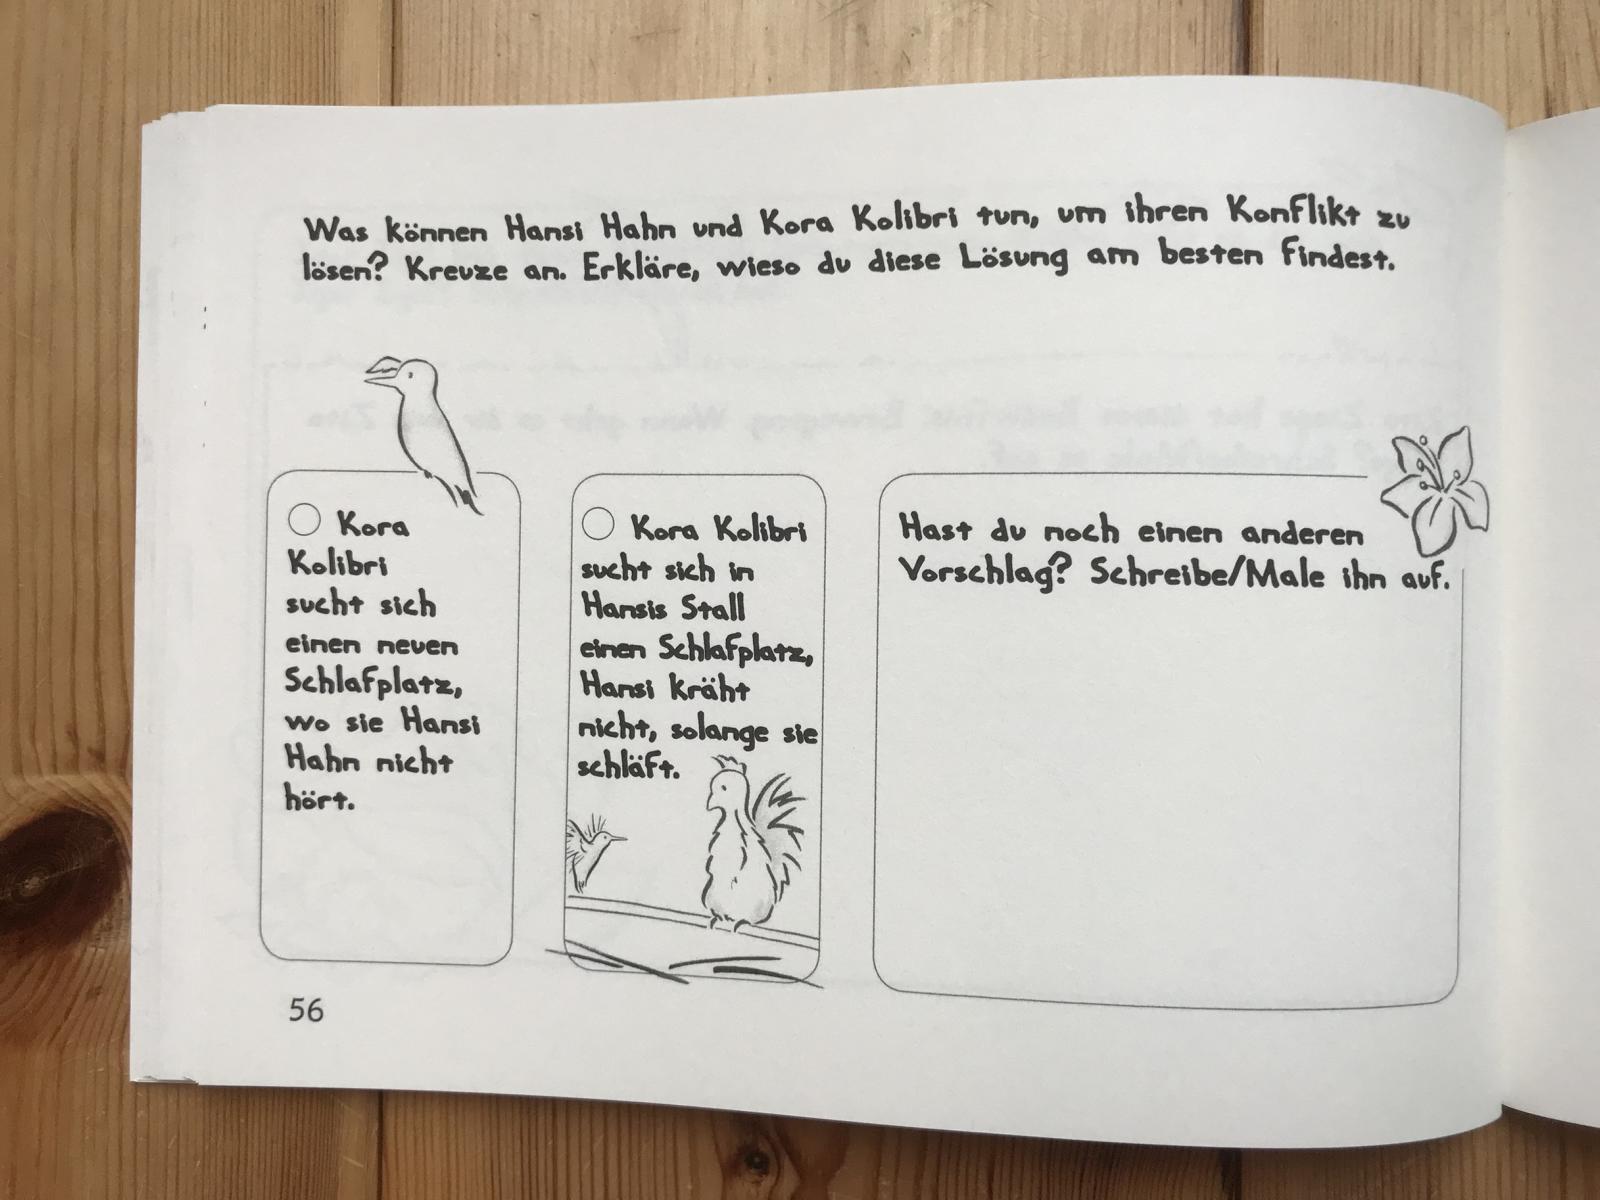 Was können Hansi Hahn und Kora Kolibri tun, um ihren Konflikt zu
lösen? Kreuze an. Erkläre, wieso du diese Lösung am besten findest.
Kora
Kolibri
sucht sich
einen neuen
Schlafplatz,
wo sie Hansi
Hahn nicht
hört.
Kora Kolibri
sucht sich in
Hansis Stall
einen Schlafplatz,
Hansi kräht
nicht, solange sie
schläft.
Hast du noch einen anderen
Vorschlag? Schreibe/Male ihn auf.
56